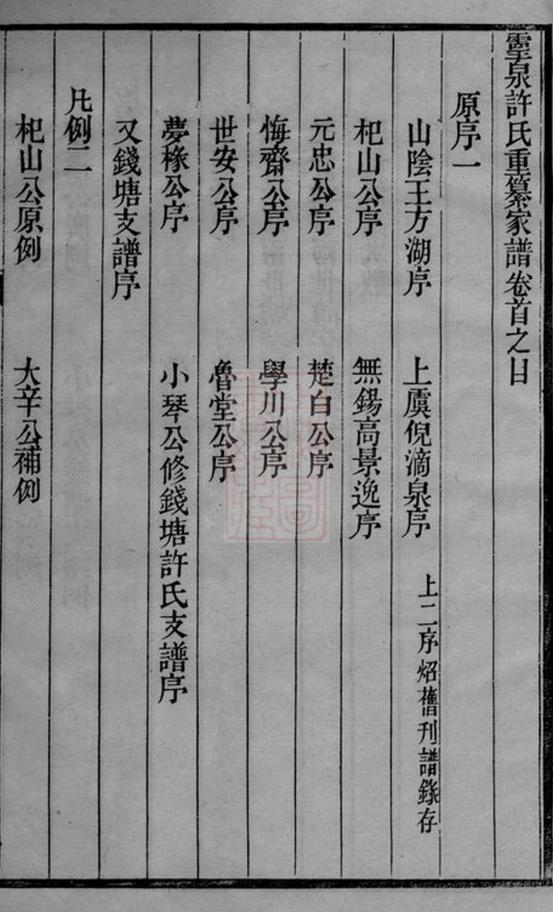 靈泉許氏重纂家譜卷首之目
原序一
山陰王方湖序　上虞倪滴泉序　上二序炤舊刊譜錄存
杞山公序　無錫高景逸序
元忠公序　楚白公序
悔齋公序　學川公序
世安公序　魯堂公序
夢椽公序　小琴公修錢塘許氏支譜序
又錢塘支譜序
凡例二
杞山公原例　大辛公補例